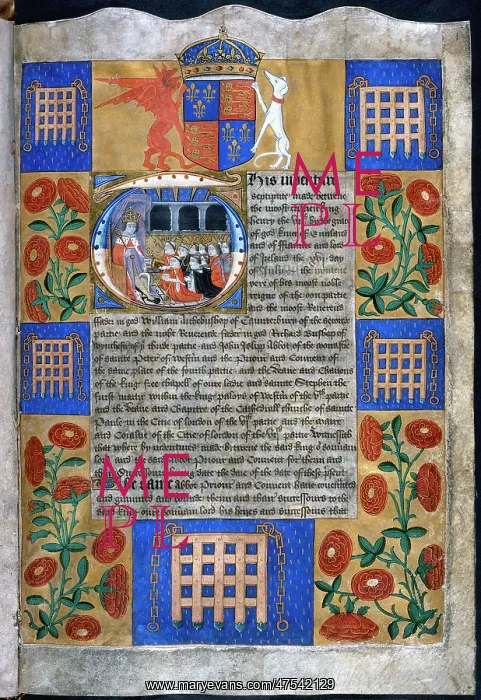 This indenture
septiptite made betwene
the moost cristen king
Henry the vijth by the grace
of god king of Englond
and of Fraunce and lord
of Ireland the xvjth day
of Julij the
yere of his moost noble
reigne of the oon partie
and the moost Reverent
ffader in god William Archebisshop of Caunterbury of the seconde
partie and the right Reverent fader in god Richard Bisshop of
Wynchestre of þe thirde partie and John Islipp Abbot of the monastie
of sainte Peter of Westm and the Priour and Convent of
the same place of the fourth partie and the Deane and Chanons
of the kings free chapell of oure ladie and sainte Stephen the
furst martir within the kings paloys of Westm of the vth partie
and the Deane and Chapitre of the Cathedrall churche of sainte
Paule in the Citie of london of the vjth partie and the maire
and Coialtie of the Citie of london of the vijth partie Witnessith
that where by indentures made betwene the said king oure souvrain
lord and the said abbot Priour and Convent for them and
their date the date of the date of these present
abbot Priour and Convent have covenanted
and graunted and bounde them and their successours to the
said king oure souvrain lord his heires and successours that
ME
PL
ME
PL
www.maryevans.com/47542129